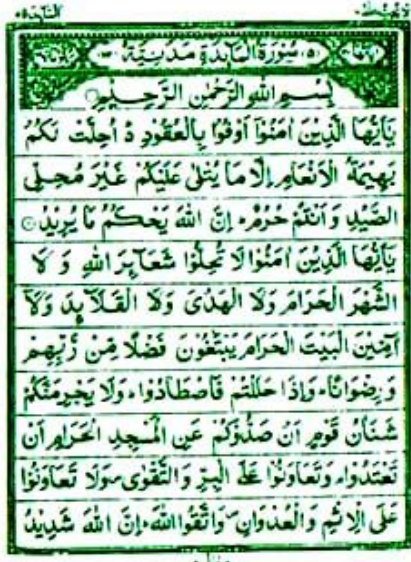 المآئدة ٥
(٥) سُوْرَةُ الْمَآئِدَةِ مَدَنِيَّةٌ
بِسْمِ اللهِ الرَّحْمٰنِ الرَّحِيْمِ
يٰۤاَيُّهَا الَّذِيْنَ اٰمَنُوْۤا اَوْفُوْا بِالْعُقُوْدِ ؕ اُحِلَّتْ لَكُمْ
بَهِيْمَةُ الْاَنْعَامِ اِلَّا مَا يُتْلٰى عَلَيْكُمْ غَيْرَ مُحِلِّى
الصَّيْدِ وَاَنْتُمْ حُرُمٌ ؕ اِنَّ اللهَ يَحْكُمُ مَا يُرِيْدُ
يٰۤاَيُّهَا الَّذِيْنَ اٰمَنُوْا لَا تُحِلُّوْا شَعَآئِرَ اللهِ وَلَا
الشَّهْرَ الْحَرَامَ وَلَا الْهَدْىَ وَلَا الْقَلَآئِدَ وَلَاۤ
اٰمِّيْنَ الْبَيْتَ الْحَرَامَ يَبْتَغُوْنَ فَضْلًا مِّنْ رَّبِّهِمْ
وَرِضْوَانًا ؕ وَاِذَا حَلَلْتُمْ فَاصْطَادُوْا ؕ وَلَا يَجْرِمَنَّكُمْ
شَنَاٰنُ قَوْمٍ اَنْ صَدُّوْكُمْ عَنِ الْمَسْجِدِ الْحَرَامِ اَنْ
تَعْتَدُوْا ۘ وَتَعَاوَنُوْا عَلَى الْبِرِّ وَالتَّقْوٰى ۪ وَلَا تَعَاوَنُوْا
عَلَى الْاِثْمِ وَالْعُدْوَانِ ۪ وَاتَّقُوا اللهَ ؕ اِنَّ اللهَ شَدِيْدُ